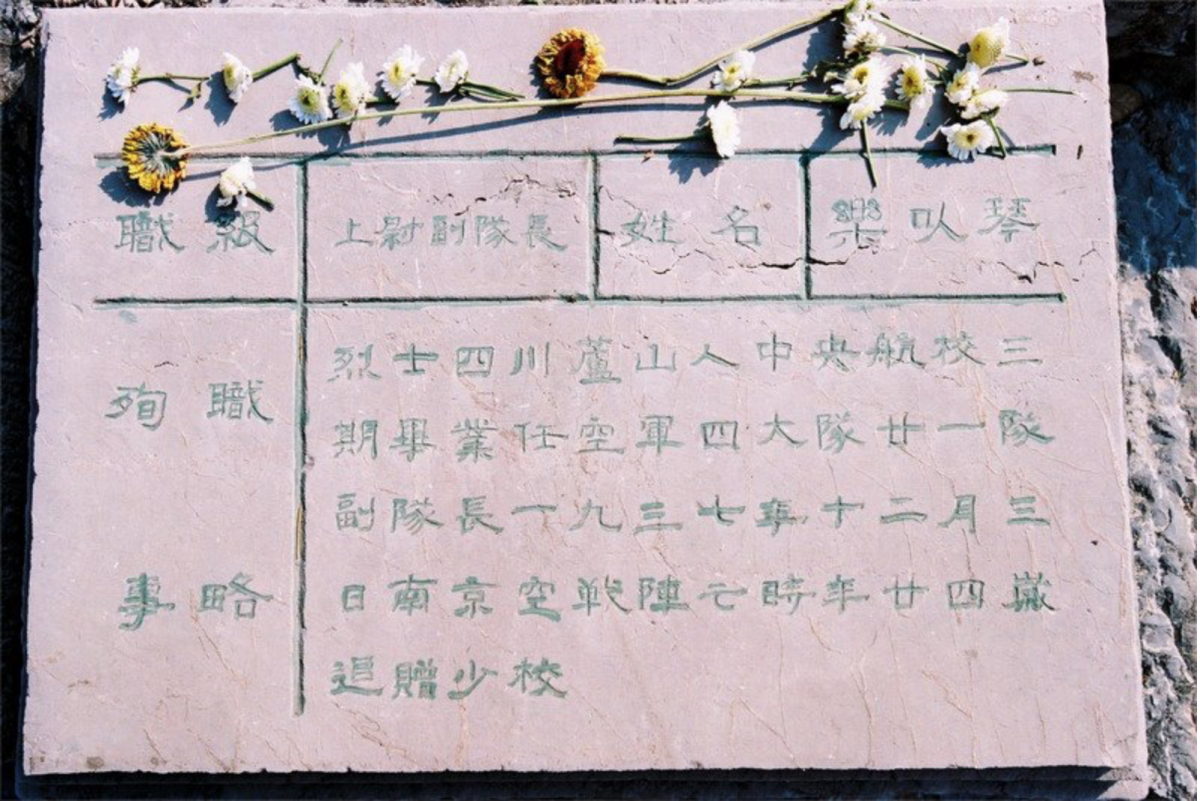 職級 上尉副隊長 姓名 樂以琴
殉職
事略
烈士四川蘆山人中央航校三
期畢業任空軍四大隊廿一隊
副隊長一九三七年十二月三
日南京空戦陣亡時年廿四歲
追贈少校